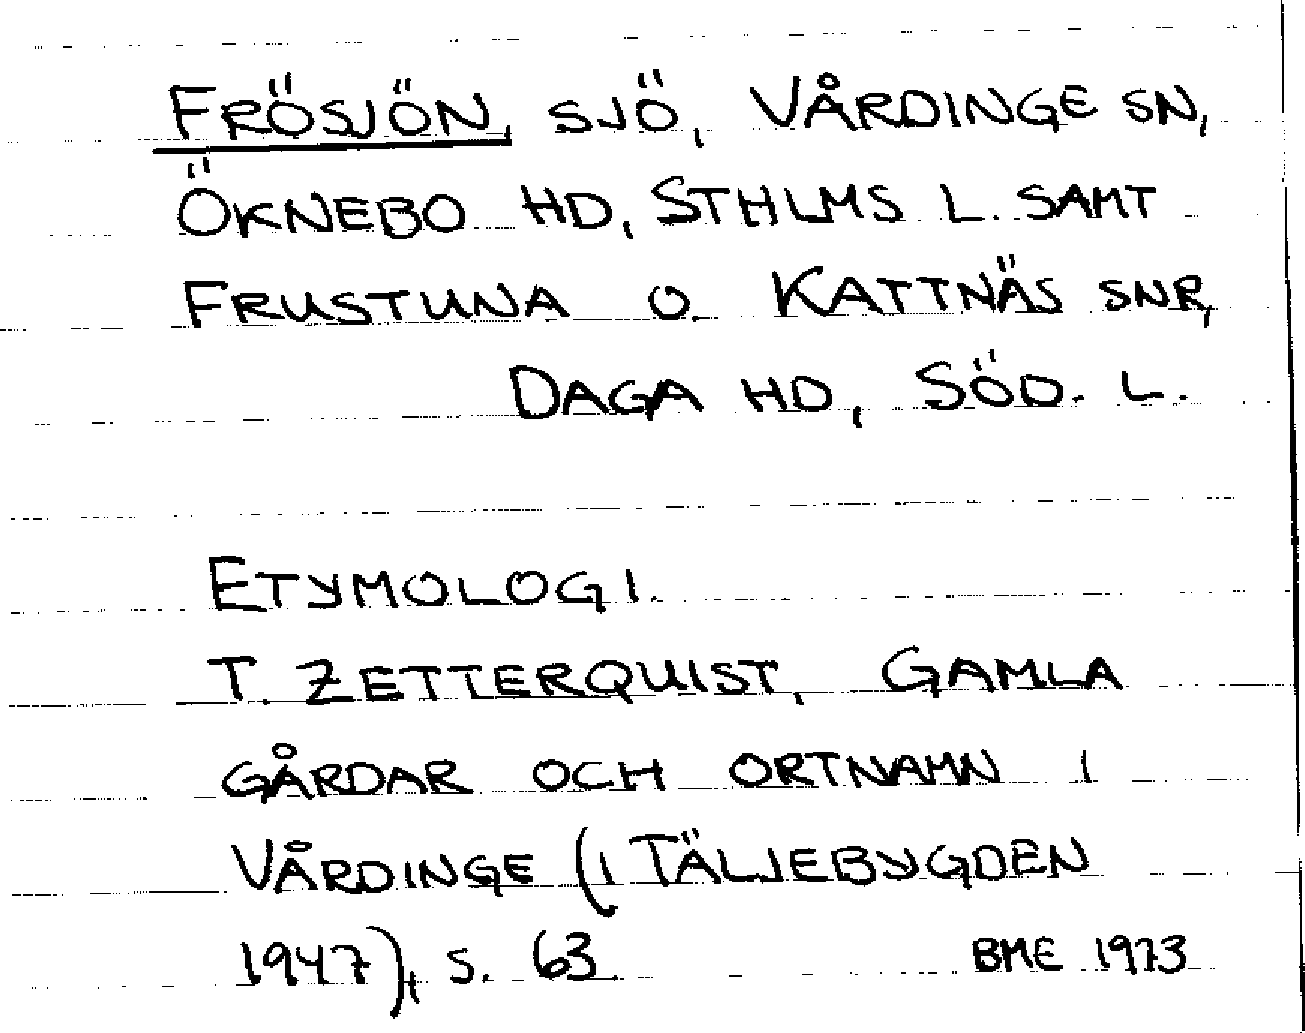 FRÖSJÖN, SJÖ, VÅRDINGE SN,
ÖKNEBO HD, STHLMS L. SAMT
FRUSTUNA O. KATTNÄS SNR,
DAGA HD, SÖD. L.
ETYMOLOGI.
T. ZETTERQUIST, GAMLA
GÅRDAR OCH ORTNAMN I
VÅRDINGE (I TÄLJEBYGDEN
1947), S. 63 BME 1973